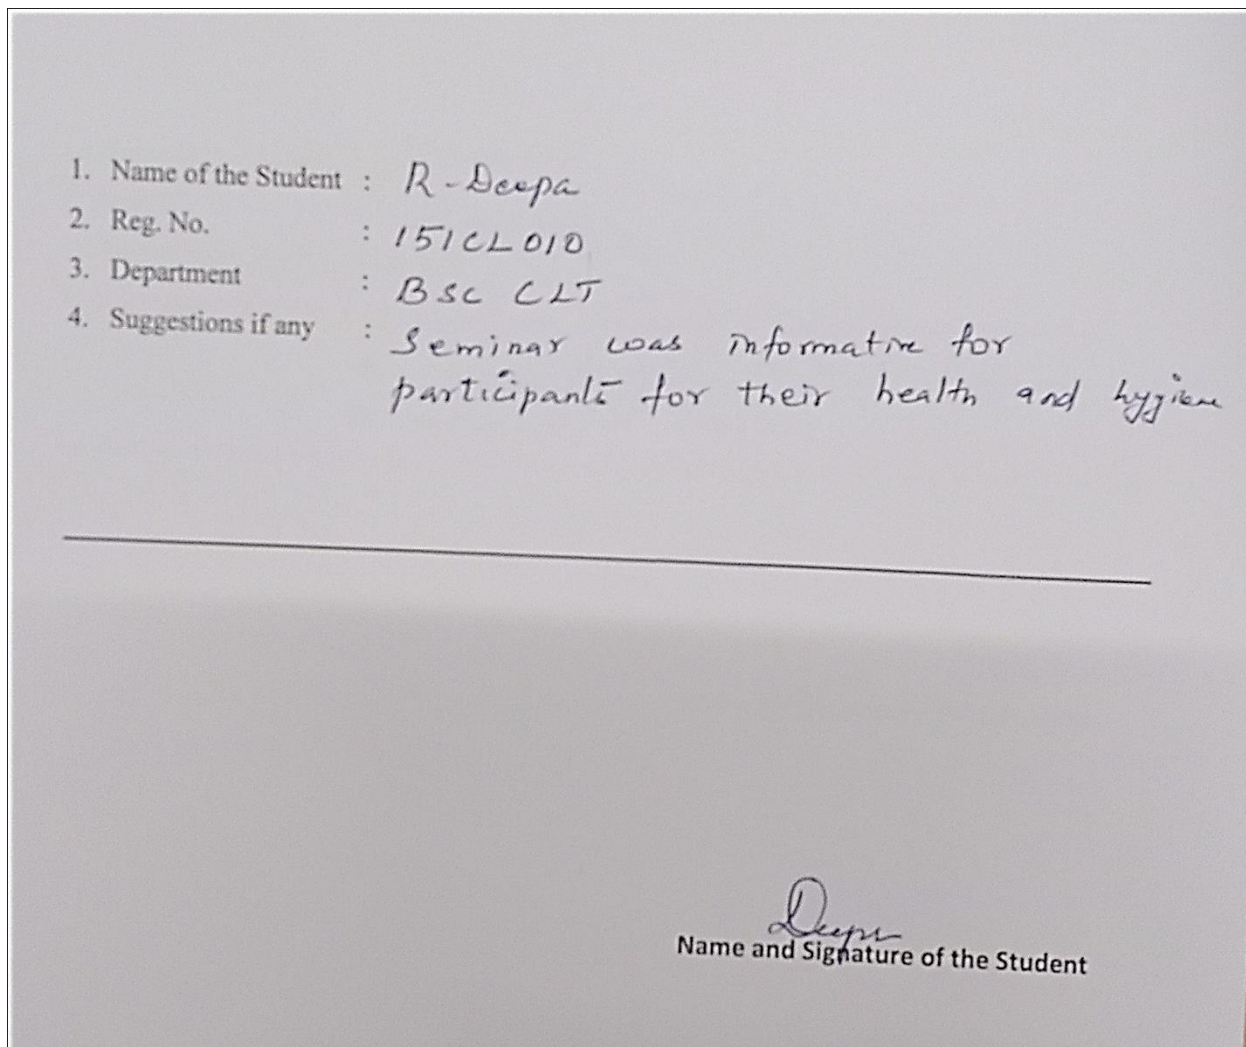 1. Name of the Student : R-Deepa
2. Reg. No. : 151CL010
3. Department : BSC CLT
4. Suggestions if any : Seminar was informative for
participants for their health and hygiene
Deepa
Name and Signature of the Student